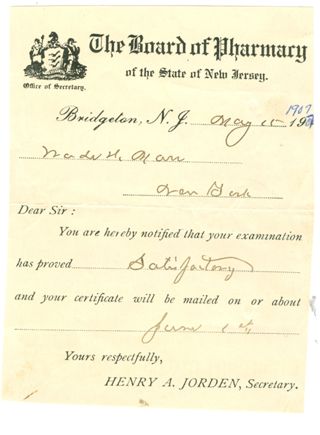 The Board of Pharmacy
of the State of New Jersey.
Office of Secretary.
Bridgeton, N. J. May 15 1907
Wade H. Marr
New York
Dear Sir:
You are hereby notified that your examination
has proved Satisfactory
and your certificate will be mailed on or about
June 1st,
Yours respectfully,
HENRY A. JORDEN, Secretary.